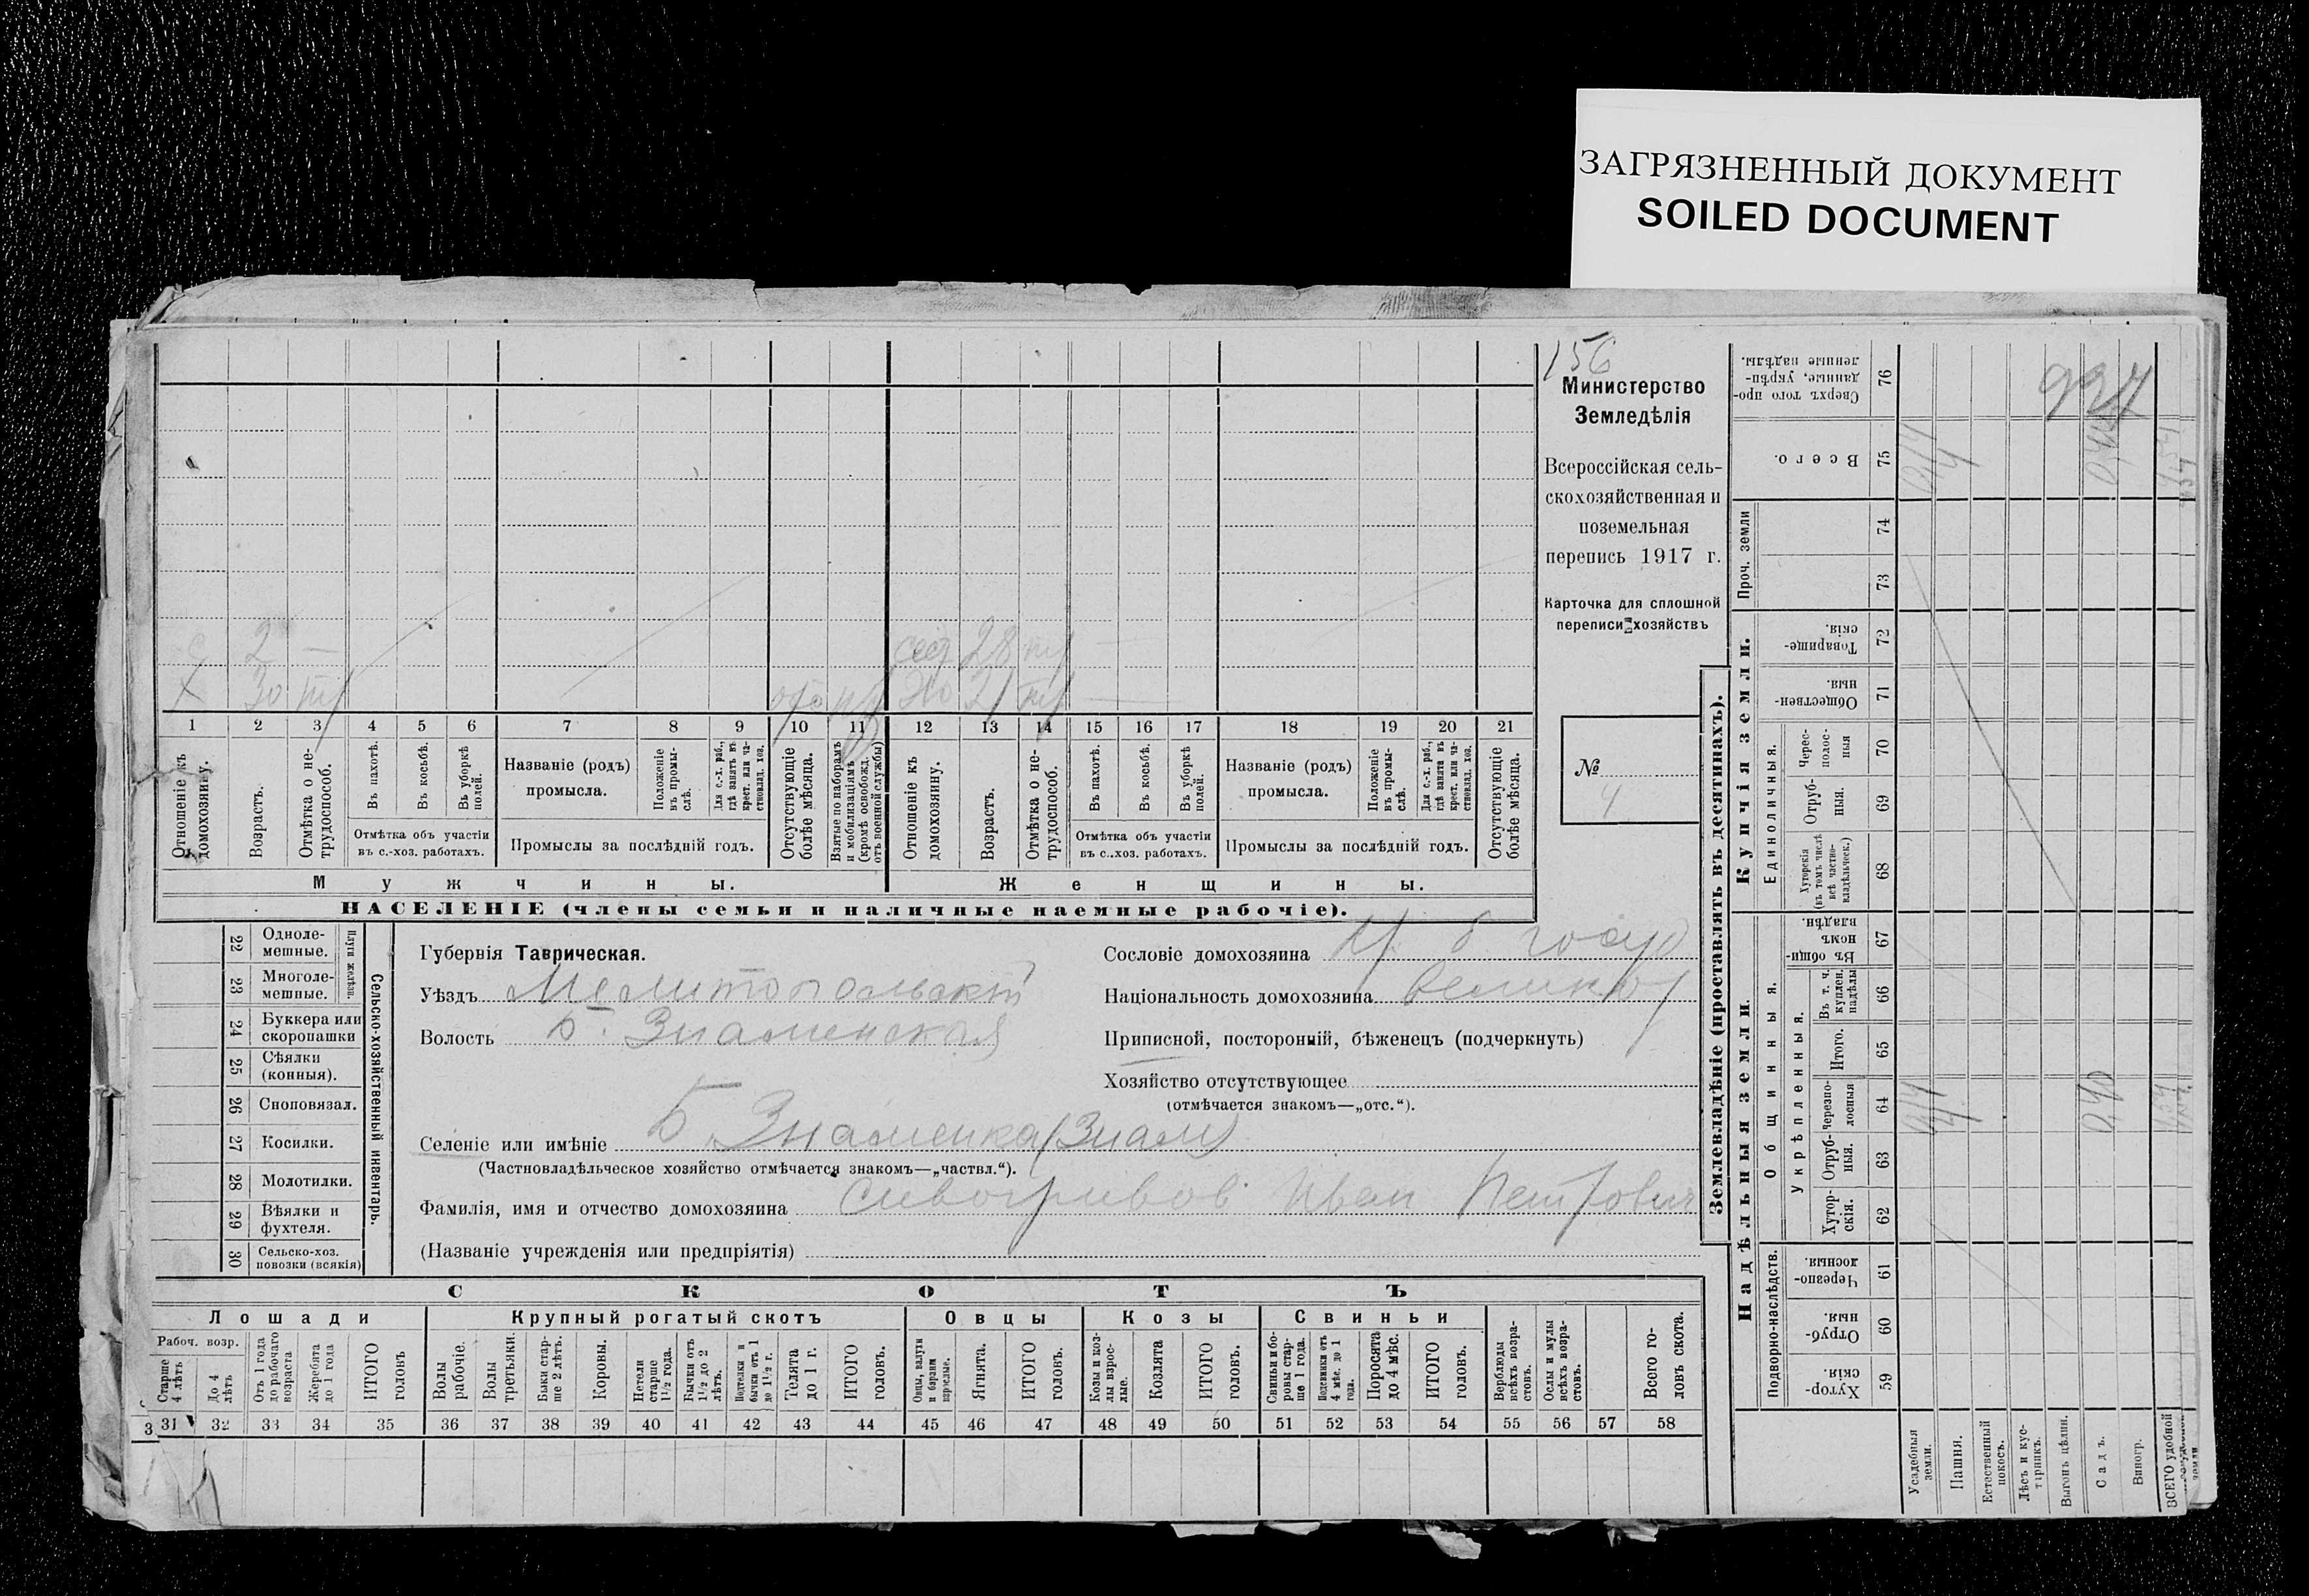 ЗАГРЯЗНЕННЫЙ ДОКУМЕНТ
SOILED DOCUMENT
156
Министерство
Земледѣлія
Всероссійская сель-
скохозяйственная и
поземельная
перепись 1917 г.
Карточка для сплошной
переписи хозяйствъ
№
4
с 2 — сед 28
х 30 21
1 2 3 4 5 6 7 8 9 10 11 12 13 14 15 16 17 18 19 20 21
Отношеніе къ домохозяину.
Возрастъ.
Отмѣтка о не-трудоспособ.
Въ пахотѣ.
Въ косьбѣ.
Въ уборкѣ полей.
Отмѣтка объ участіи
въ с.-хоз. работахъ.
Названіе (родъ)
промысла.
Положеніе въ промы-слѣ.
Для с.-х. раб., гдѣ занятъ въ крест. или ча-стновлад. хоз.
Промыслы за послѣдній годъ.
Отсутствующіе болѣе мѣсяца.
Взятые по наборамъ и мобилизаціямъ (кромѣ освобожд. отъ военной службы)
Отношеніе къ домохозяину.
Возрастъ.
Отмѣтка о не-трудоспособ.
Въ пахотѣ.
Въ косьбѣ.
Въ уборкѣ полей.
Отмѣтка объ участіи
въ с.-хоз. работахъ.
Названіе (родъ)
промысла.
Положеніе въ промы-слѣ.
Для с.-х. раб., гдѣ занята въ крест. или ча-стновлад. хоз.
Промыслы за послѣдній годъ.
Отсутствующіе болѣе мѣсяца.
Мужчины.
Женщины.
НАСЕЛЕНІЕ (члены семьи и наличные наемные рабочіе).
22 Одноле-мешные.
23 Многоле-мешные.
Плуги желѣзн.
24 Буккера или скоропашки
25 Сѣялки (конныя).
26 Сноповязал.
27 Косилки.
28 Молотилки.
29 Вѣялки и фухтеля.
30 Сельско-хоз. повозки (всякія)
Сельско-хозяйственный инвентарь.
Губернія Таврическая.
Уѣздъ Мелитопольскій
Волость Б. Знаменская
Селеніе или имѣніе Б. Знаменка (Знам)
(Частновладѣльческое хозяйство отмѣчается знакомъ—„частвл.“).
Фамилія, имя и отчество домохозяина Сивогривов Иван Петрович
(Названіе учрежденія или предпріятія)
Сословіе домохозяина кр. б. госуд
Національность домохозяина великор
Приписной, посторонній, бѣженецъ (подчеркнуть)
Хозяйство отсутствующее
(отмѣчается знакомъ—„отс.“).
СКОТЪ
Лошади
Крупный рогатый скотъ
Овцы
Козы
Свиньи
Рабоч. возр.
Старше 4 лѣтъ
До 4 лѣтъ
Отъ 1 года до рабочаго возраста
Жеребята до 1 года
ИТОГО головъ
Волы рабочіе.
Волы третьяки.
Быки стар-ше 2 лѣтъ.
Коровы.
Нетели старше 1½ года.
Бычки отъ 1½ до 2 лѣтъ.
Подтелки и бычки отъ 1 до 1½ г.
Телята до 1 г.
ИТОГО головъ.
Овцы, валухи и бараны взрослые.
Ягнята.
ИТОГО головъ.
Козы и коз-лы взрос-лые.
Козлята
ИТОГО головъ.
Свиньи и бо-ровы стар-ше 1 года.
Подсвинки отъ 4 мѣс. до 1 года.
Поросята до 4 мѣс.
ИТОГО головъ.
Верблюды всѣхъ возра-стовъ.
Ослы и мулы всѣхъ возра-стовъ.
Всего го-ловъ скота.
31 32 33 34 35 36 37 38 39 40 41 42 43 44 45 46 47 48 49 50 51 52 53 54 55 56 57 58
Землевладѣніе (проставлять въ десятинахъ).
Надѣльныя земли.
Купчія земли.
Проч. земли
Подворно-наслѣдств.
Общинныя.
Укрѣпленныя.
Единоличныя.
Сверхъ того про-данные, укрѣп-ленные надѣлы. 76
Всего. 75
74
73
Товарище-скія. 72
Обществен-ныя. 71
Черес-полос-ныя 70
Отруб-ныя. 69
Хуторскія (въ томъ числѣ всѣ частно-владѣльческ.) 68
Въ общин-номъ владѣн. 67
Въ т. ч. куплен. надѣлы 66
Итого. 65
Черезпо-лосныя 64
Отруб-ныя. 63
Хутор-скія. 62
Черезпо-лосныя. 61
Отруб-ныя 60
Хутор-скія. 59
Усадебныя земли.
Пашня.
Естественный покосъ.
Лѣсъ и кус-тарникъ.
Выгонъ цѣлин.
Садъ.
Виногр.
ВСЕГО удобной земли